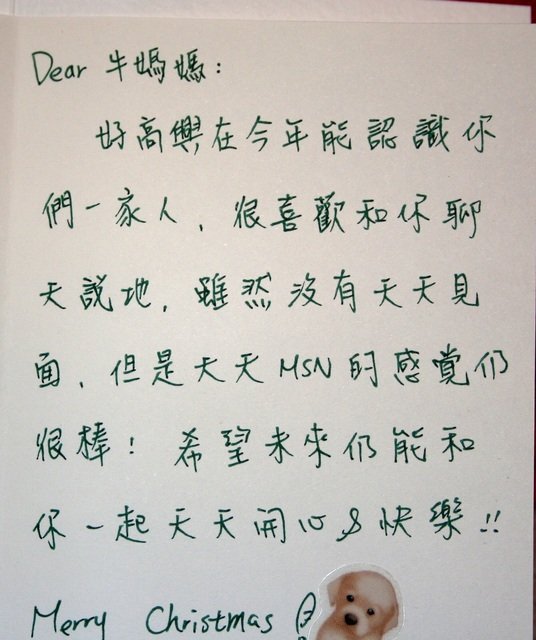 Dear 牛媽媽:
好高興在今年能認識你
們一家人, 很喜歡和你聊
天說地, 雖然沒有天天見
面, 但是天天 MSN 的感覺仍
很棒! 希望未來仍能和
你一起天天開心 & 快樂!!
Merry Christmas